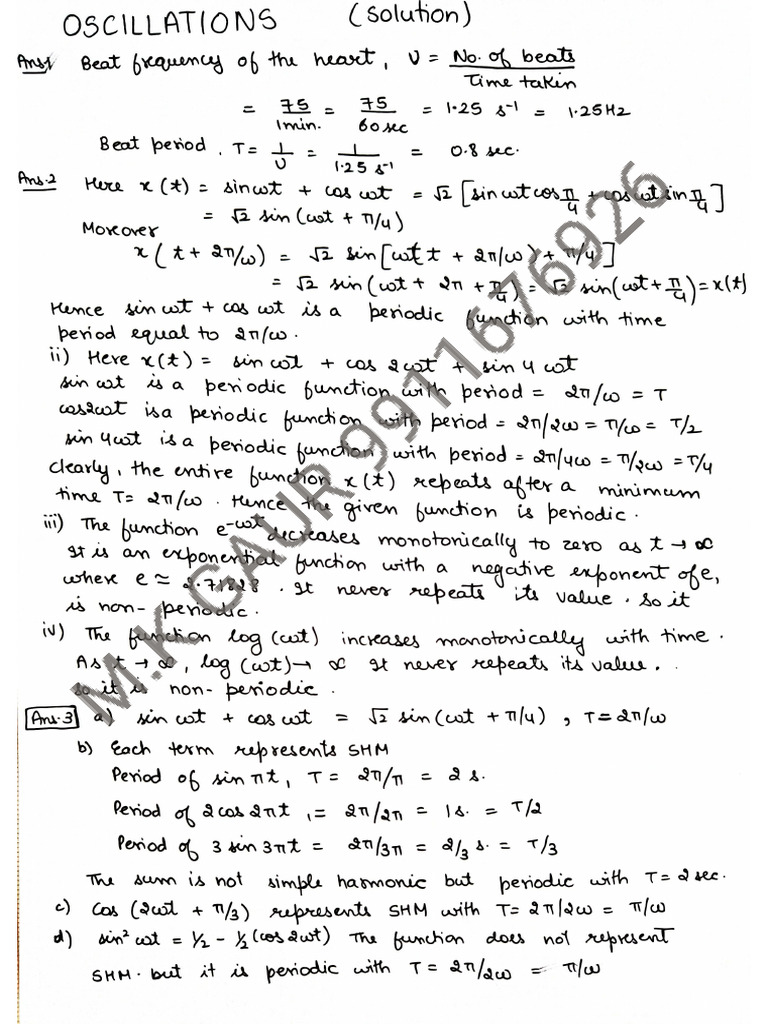 OSCILLATIONS (Solution)
Ans1 Beat frequency of the heart, υ = No. of beats / Time taken
= 75/1min. = 75/60sec = 1.25 s⁻¹ = 1.25Hz
Beat period, T = 1/υ = 1/1.25 s⁻¹ = 0.8 sec.
Ans.2 Here x(t) = sinωt + cos ωt = √2 [sin ωt cos π/4 + cos ωt sin π/4]
= √2 sin (ωt + π/4)
Moreover
x(t + 2π/ω) = √2 sin[ω(t + 2π/ω) + π/4]
= √2 sin (ωt + 2π + π/4) = √2 sin(ωt + π/4) = x(t)
Hence sin ωt + cos ωt is a periodic function with time
period equal to 2π/ω.
ii) Here x(t) = sin ωt + cos 2ωt + sin 4 ωt
sin ωt is a periodic function with period = 2π/ω = T
cos2ωt is a periodic function with period = 2π/2ω = π/ω = T/2
sin 4ωt is a periodic function with period = 2π/4ω = π/2ω = T/4
clearly, the entire function x(t) repeats after a minimum
time T = 2π/ω. Hence the given function is periodic.
iii) The function e^-ωt decreases monotonically to zero as t → ∞
It is an exponential function with a negative exponent of e,
where e ≃ 2.71828. It never repeats its value. So it
is non-periodic.
iv) The function log (ωt) increases monotonically with time.
As t → ∞, log (ωt) → ∞ It never repeats its value.
so it is non-periodic.
Ans.3 a) sin ωt + cos ωt = √2 sin (ωt + π/4), T = 2π/ω
b) Each term represents SHM
Period of sin πt, T = 2π/π = 2 s.
Period of 2 cos 2πt, = 2π/2π = 1s. = T/2
Period of 3 sin 3πt = 2π/3π = 2/3 s. = T/3
The sum is not simple harmonic but periodic with T = 2 sec.
c) cos (2ωt + π/3) represents SHM with T = 2π/2ω = π/ω
d) sin² ωt = 1/2 - 1/2 (cos 2ωt) The function does not represent
SHM. but it is periodic with T = 2π/2ω = π/ω
M.K GAUR 9911676926